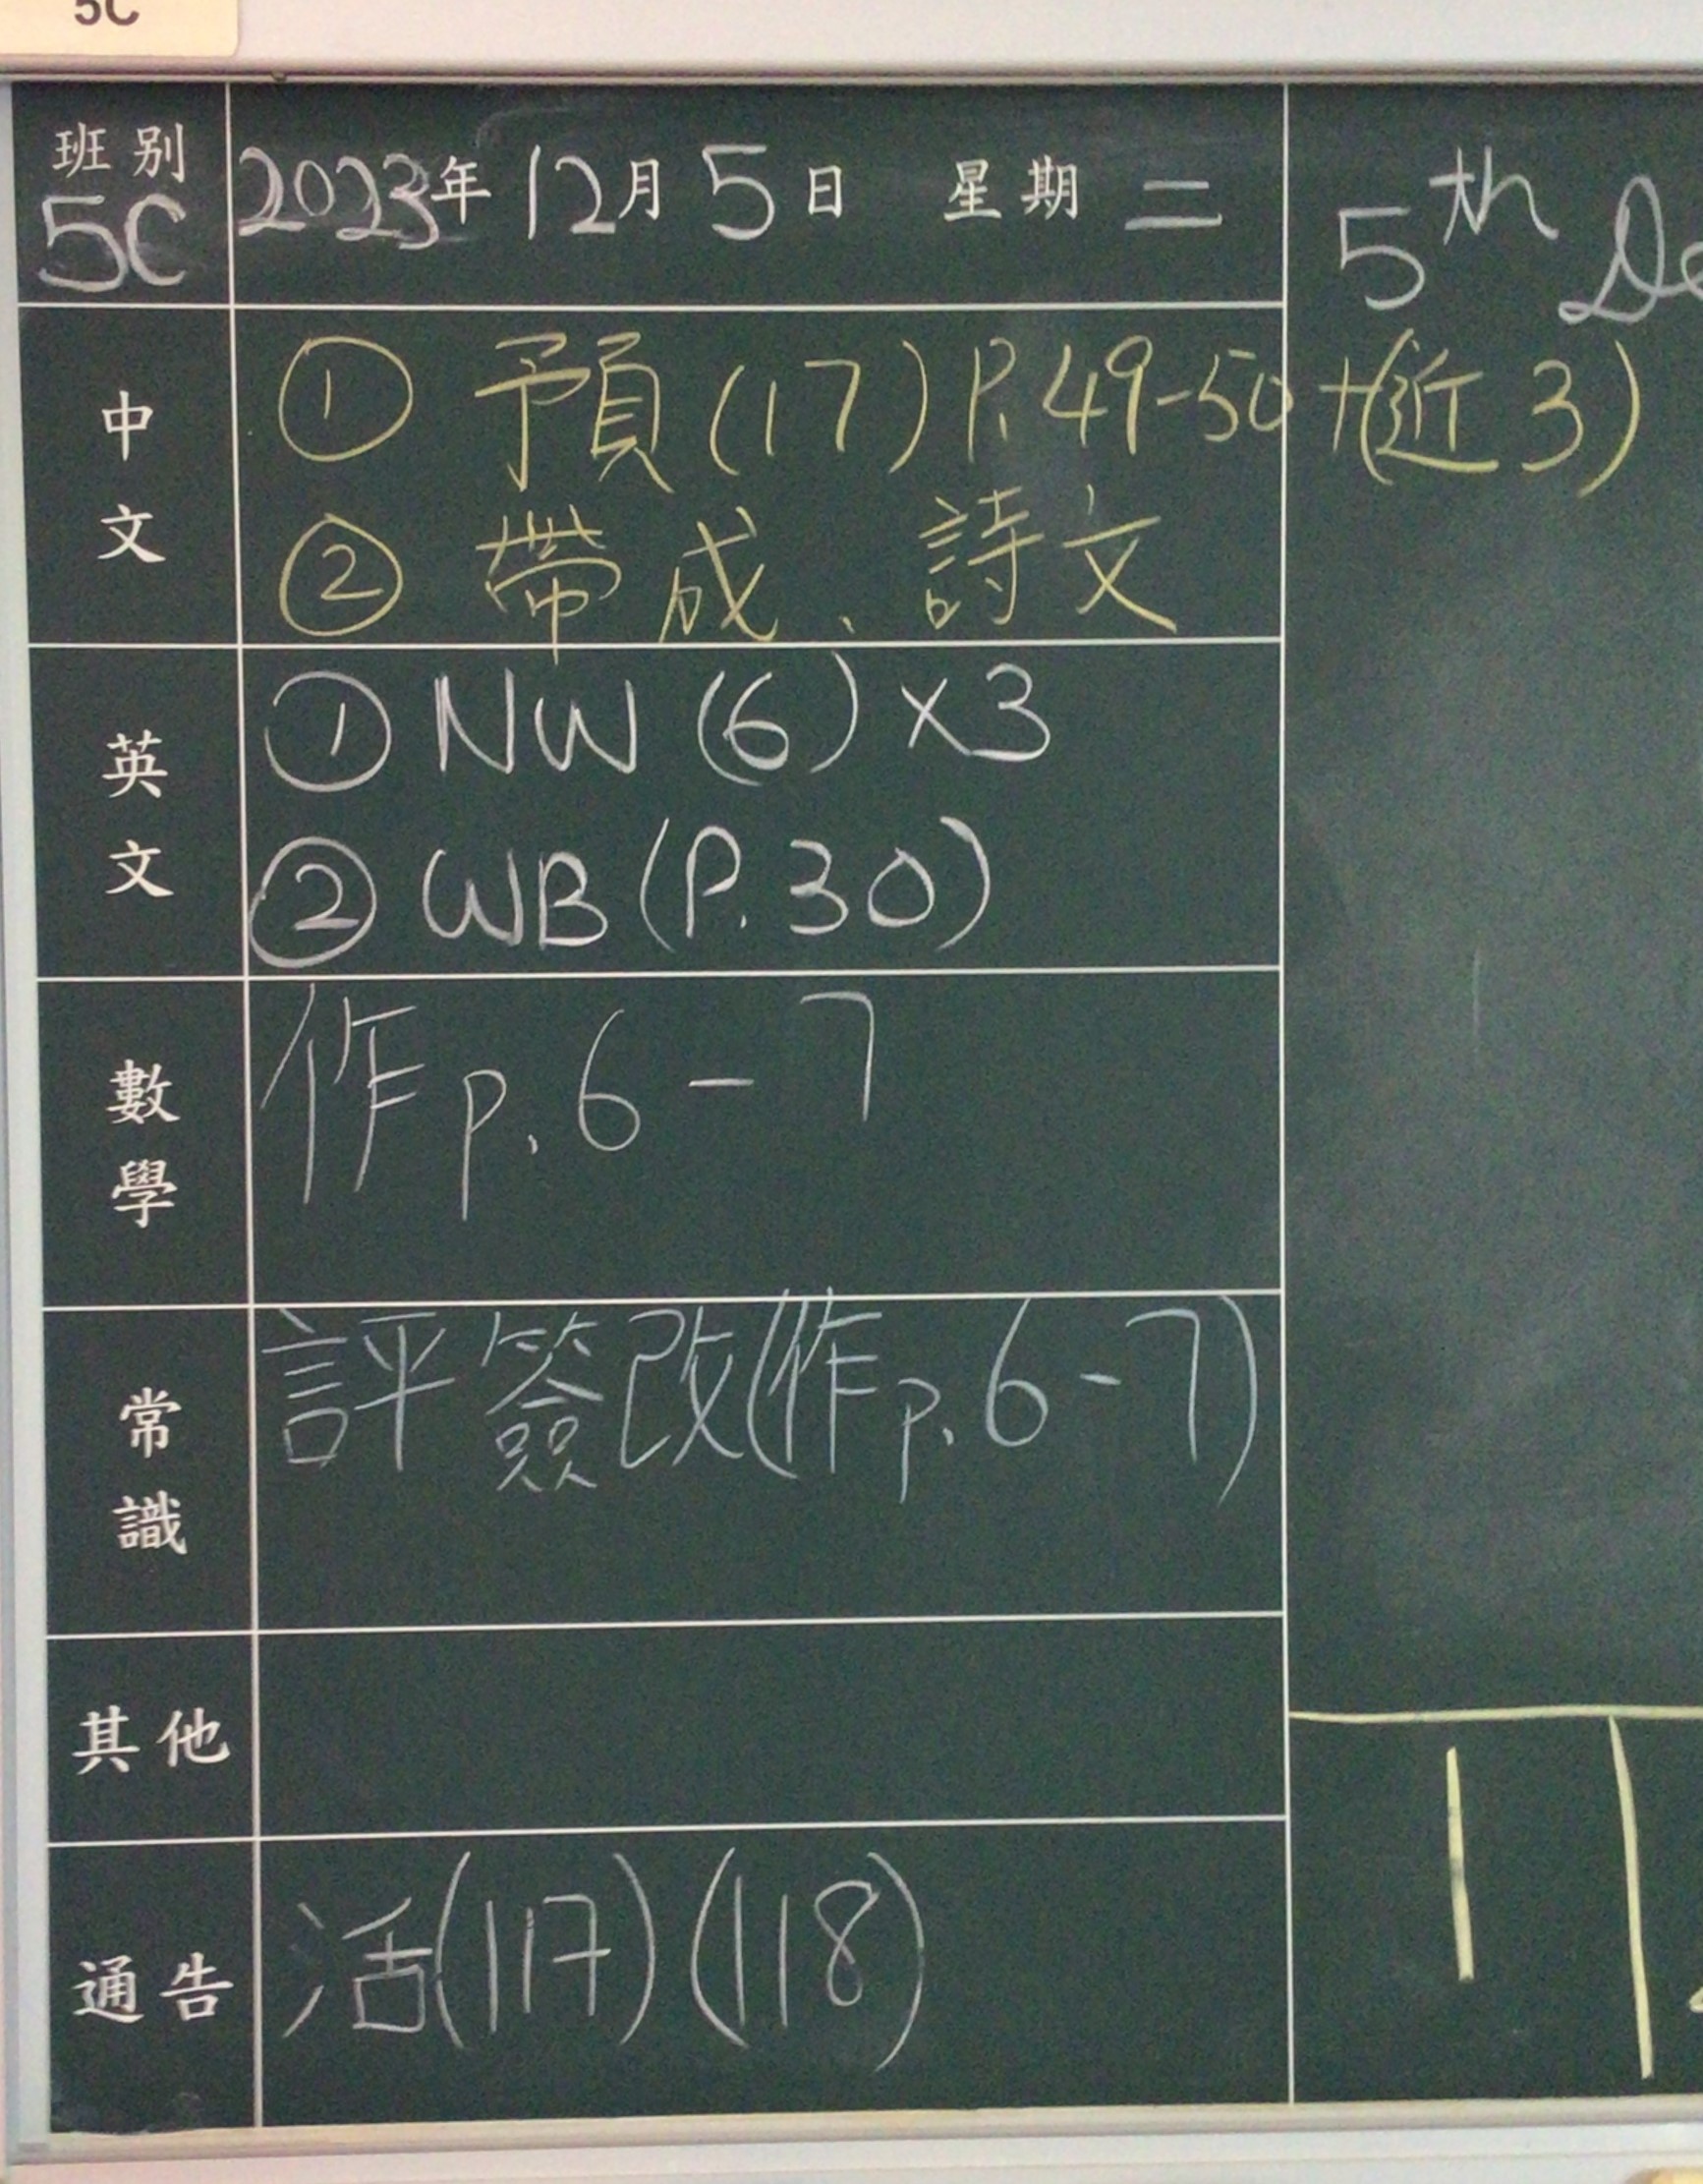 5C
班別
5C
2023年12月5日 星期二
5th De
中文
① 預(17)P.49-50+(近3)
② 帶成、詩文
英文
① NW (6) ×3
② WB (P.30)
數學
作p.6-7
常識
評簽改(作p.6-7)
其他
通告
活(117)(118)
1